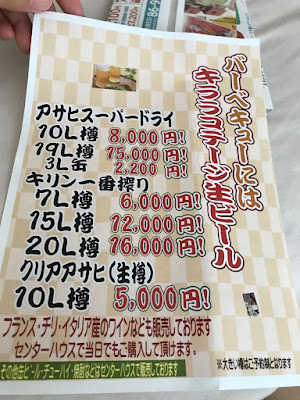 バーベキューには
キララコテージ生ビール
アサヒスーパードライ
10L樽 8,000円!
19L樽 15,000円!
3L缶 2,200円!
キリン一番搾り
7L樽 6,000円!
15L樽 12,000円!
20L樽 16,000円!
クリアアサヒ(生樽)
10L樽 5,000円!
フランス・チリ・イタリア産のワインなども販売しております
センターハウスで当日でもご購入して頂けます。
その他缶ビール・チューハイ・焼酎などはセンターハウスで販売しております
※大きい樽はご予約制となります